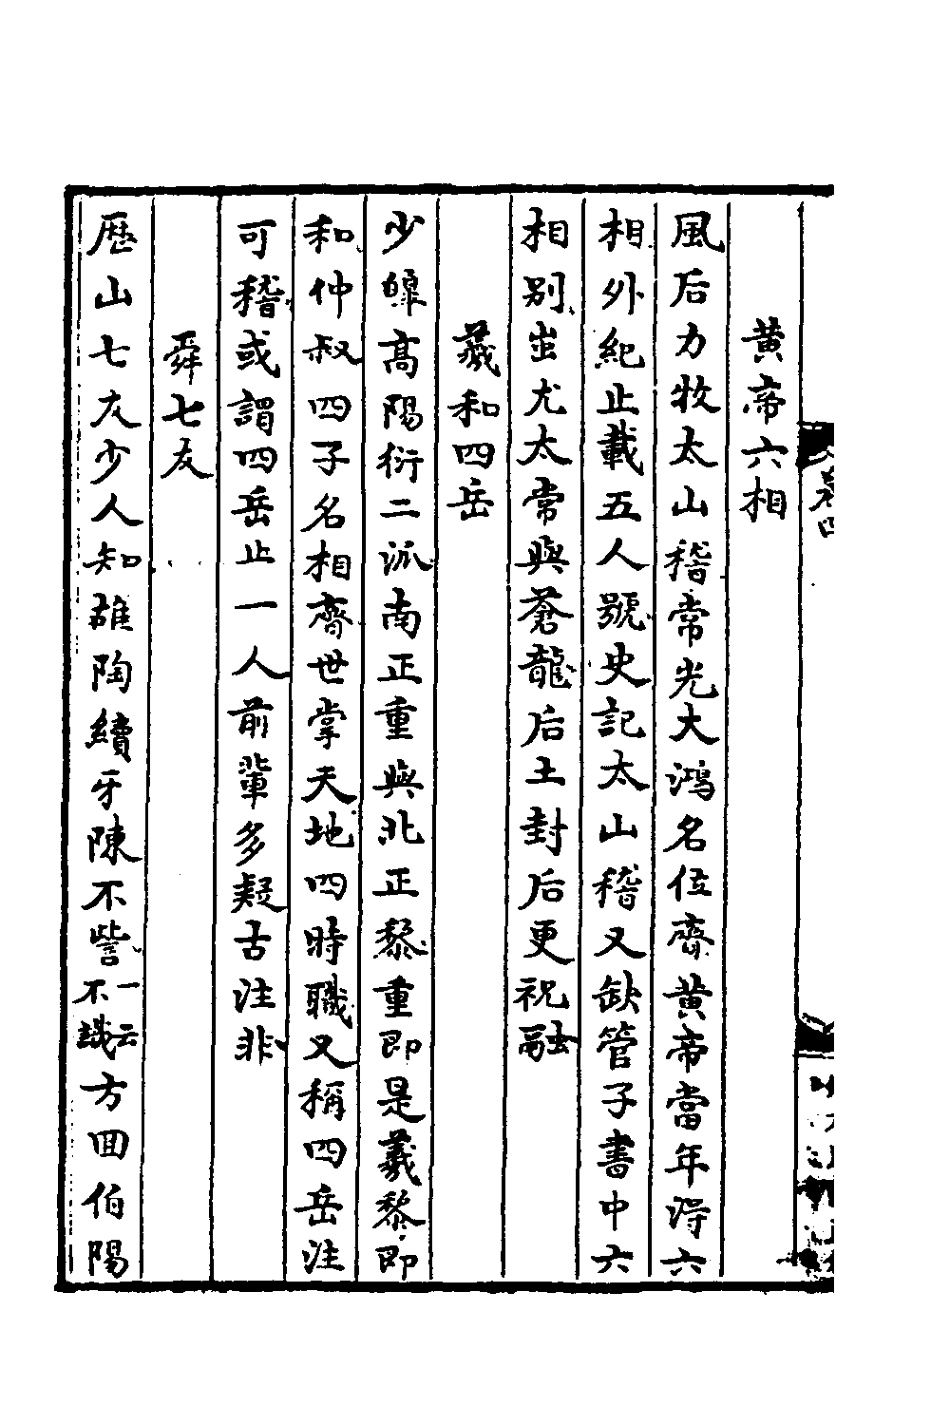 黄帝六相
風后力牧太山稽常光大鴻名位齊黄帝當年得六
相外紀止載五人號史記太山稽又缺管子書中六
相别出尤太常與蒼龍后土封后更祝融
羲和四岳
少皥高陽衍二派南正重與北正黎重即是羲黎即
和仲叔四子名相齊世掌天地四時職又稱四岳注
可稽或謂四岳止一人前輩多疑古注非
舜七友
歴山七友少人知雄陶續牙陳不訾一云不識方回伯陽